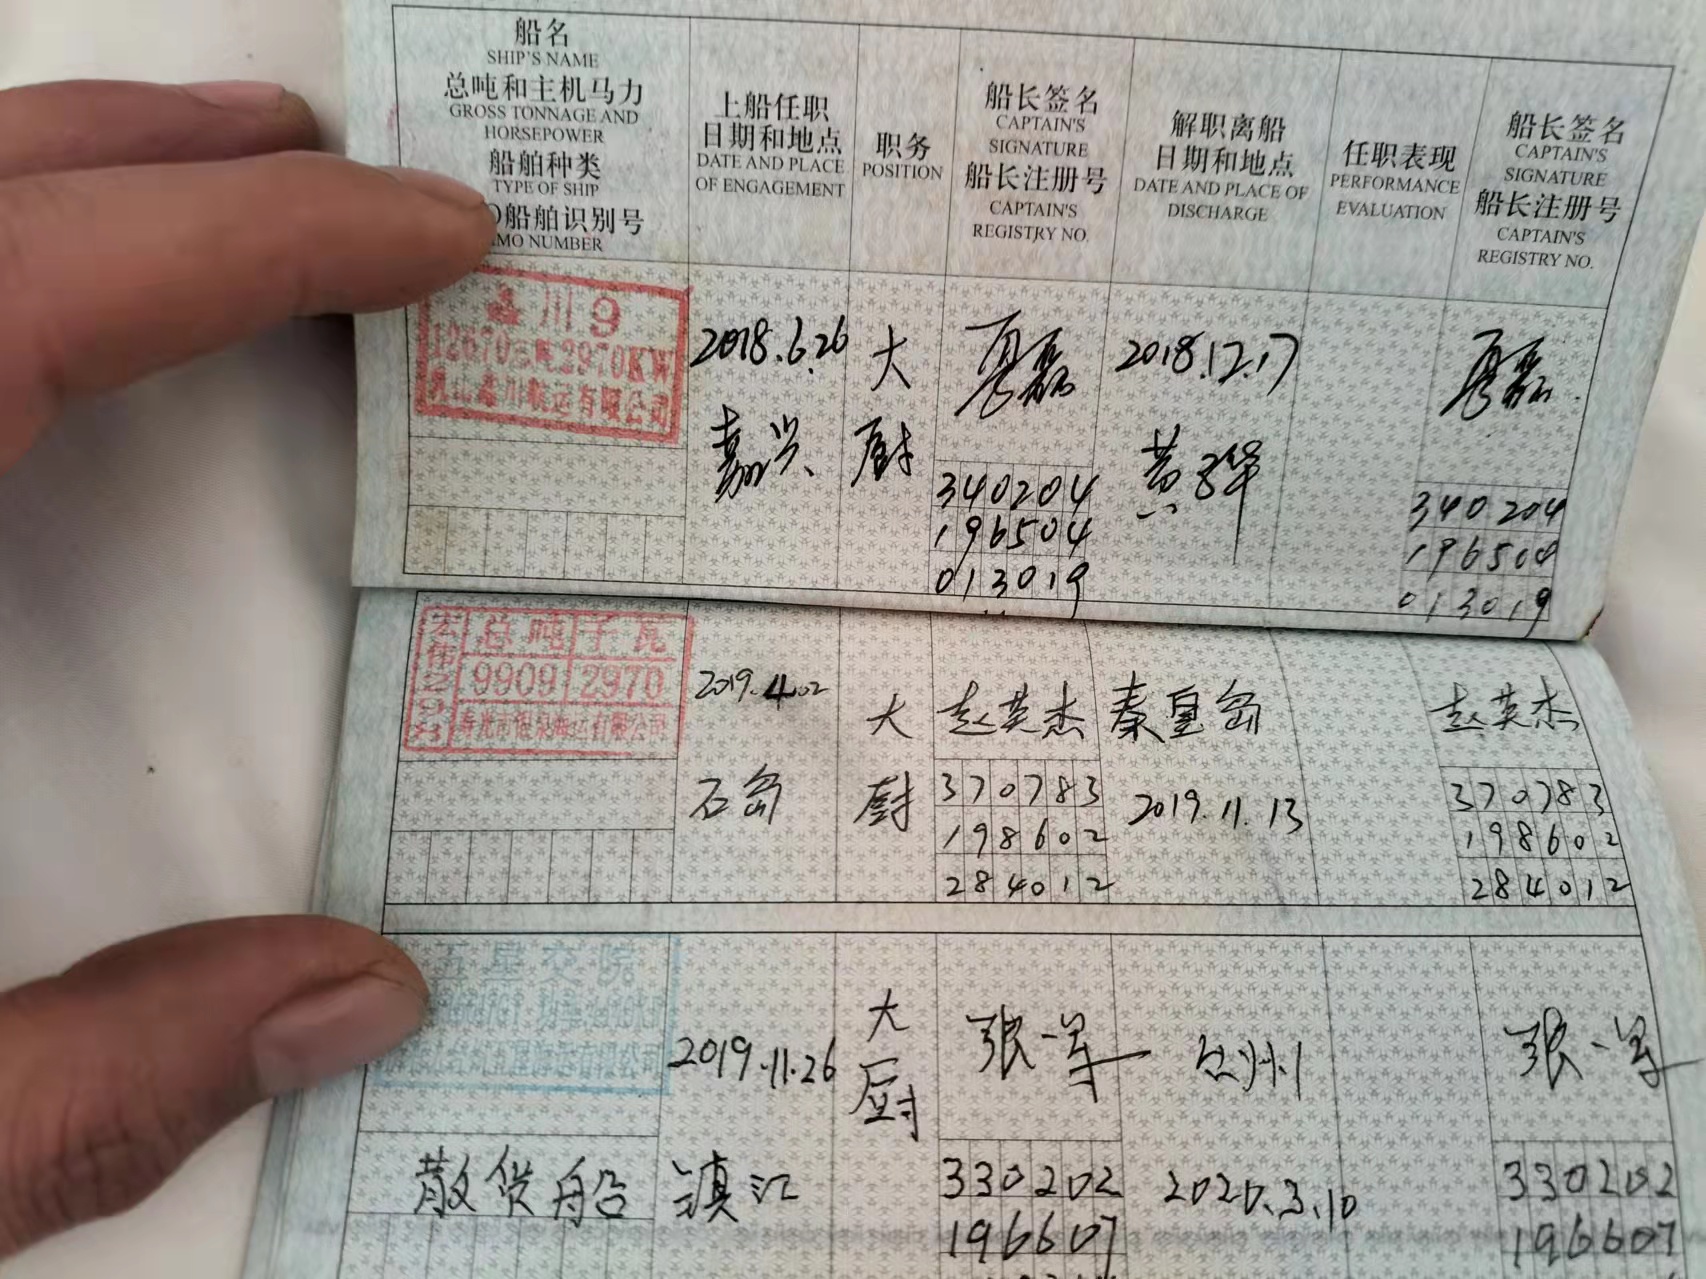 船名
SHIP'S NAME
总吨和主机马力
GROSS TONNAGE AND
HORSEPOWER
船舶种类
TYPE OF SHIP
船舶识别号
IMO NUMBER
上船任职
日期和地点
DATE AND PLACE
OF ENGAGEMENT
职务
POSITION
船长签名
CAPTAIN'S
SIGNATURE
船长注册号
CAPTAIN'S
REGISTRY NO.
解职离船
日期和地点
DATE AND PLACE OF
DISCHARGE
任职表现
PERFORMANCE
EVALUATION
船长签名
CAPTAIN'S
SIGNATURE
船长注册号
CAPTAIN'S
REGISTRY NO.
鑫川9
12670总吨2970KW
乳山鑫川航运有限公司
2018.6.26
嘉兴
大
厨
340204
196504
013019
2018.12.17
黄骅
340204
196504
013019
总吨 千瓦
9909 2970
寿光市银泉海运有限公司
2019.4.02
石岛
大
厨
赵英杰
370783
198602
284012
秦皇岛
2019.11.13
赵英杰
370783
198602
284012
散货船
2019.11.26
镇江
大
厨
张一军
330202
196607
2020.3.10
张一军
330202
196607